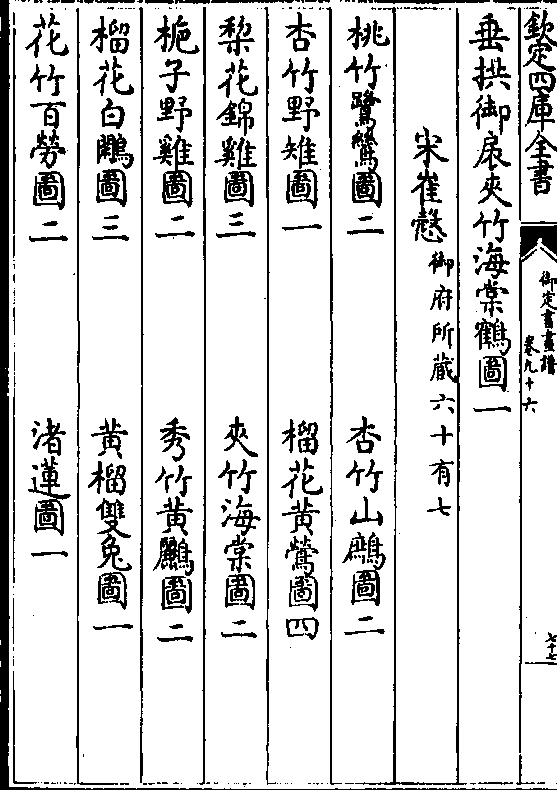 欽定四庫全書
御定書畫譜
卷九十六
七十七
垂拱御扆夾竹海棠鶴圖一
宋崔慤御府所藏六十有七
桃竹鷺鷥圖二
杏竹山鷓圖二
杏竹野雉圖一
榴花黃鶯圖四
梨花錦雞圖三
夾竹海棠圖二
梔子野雞圖二
秀竹黃鸝圖二
榴花白鷳圖三
黃榴雙兔圖一
花竹百勞圖二
渚蓮圖一